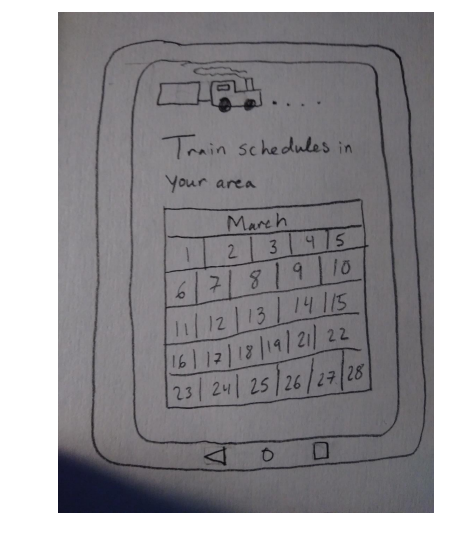 Train schedules in
your area
March
1 2 3 4 5
6 7 8 9 10
11 12 13 14 15
16 17 18 19 21 22
23 24 25 26 27 28